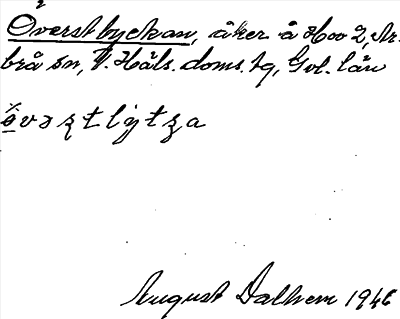 Överstlyckan, åker å Hov 2, Ar-
brå sn, V. Häls. doms. tg, Gvl. län
August Dalhem 1946